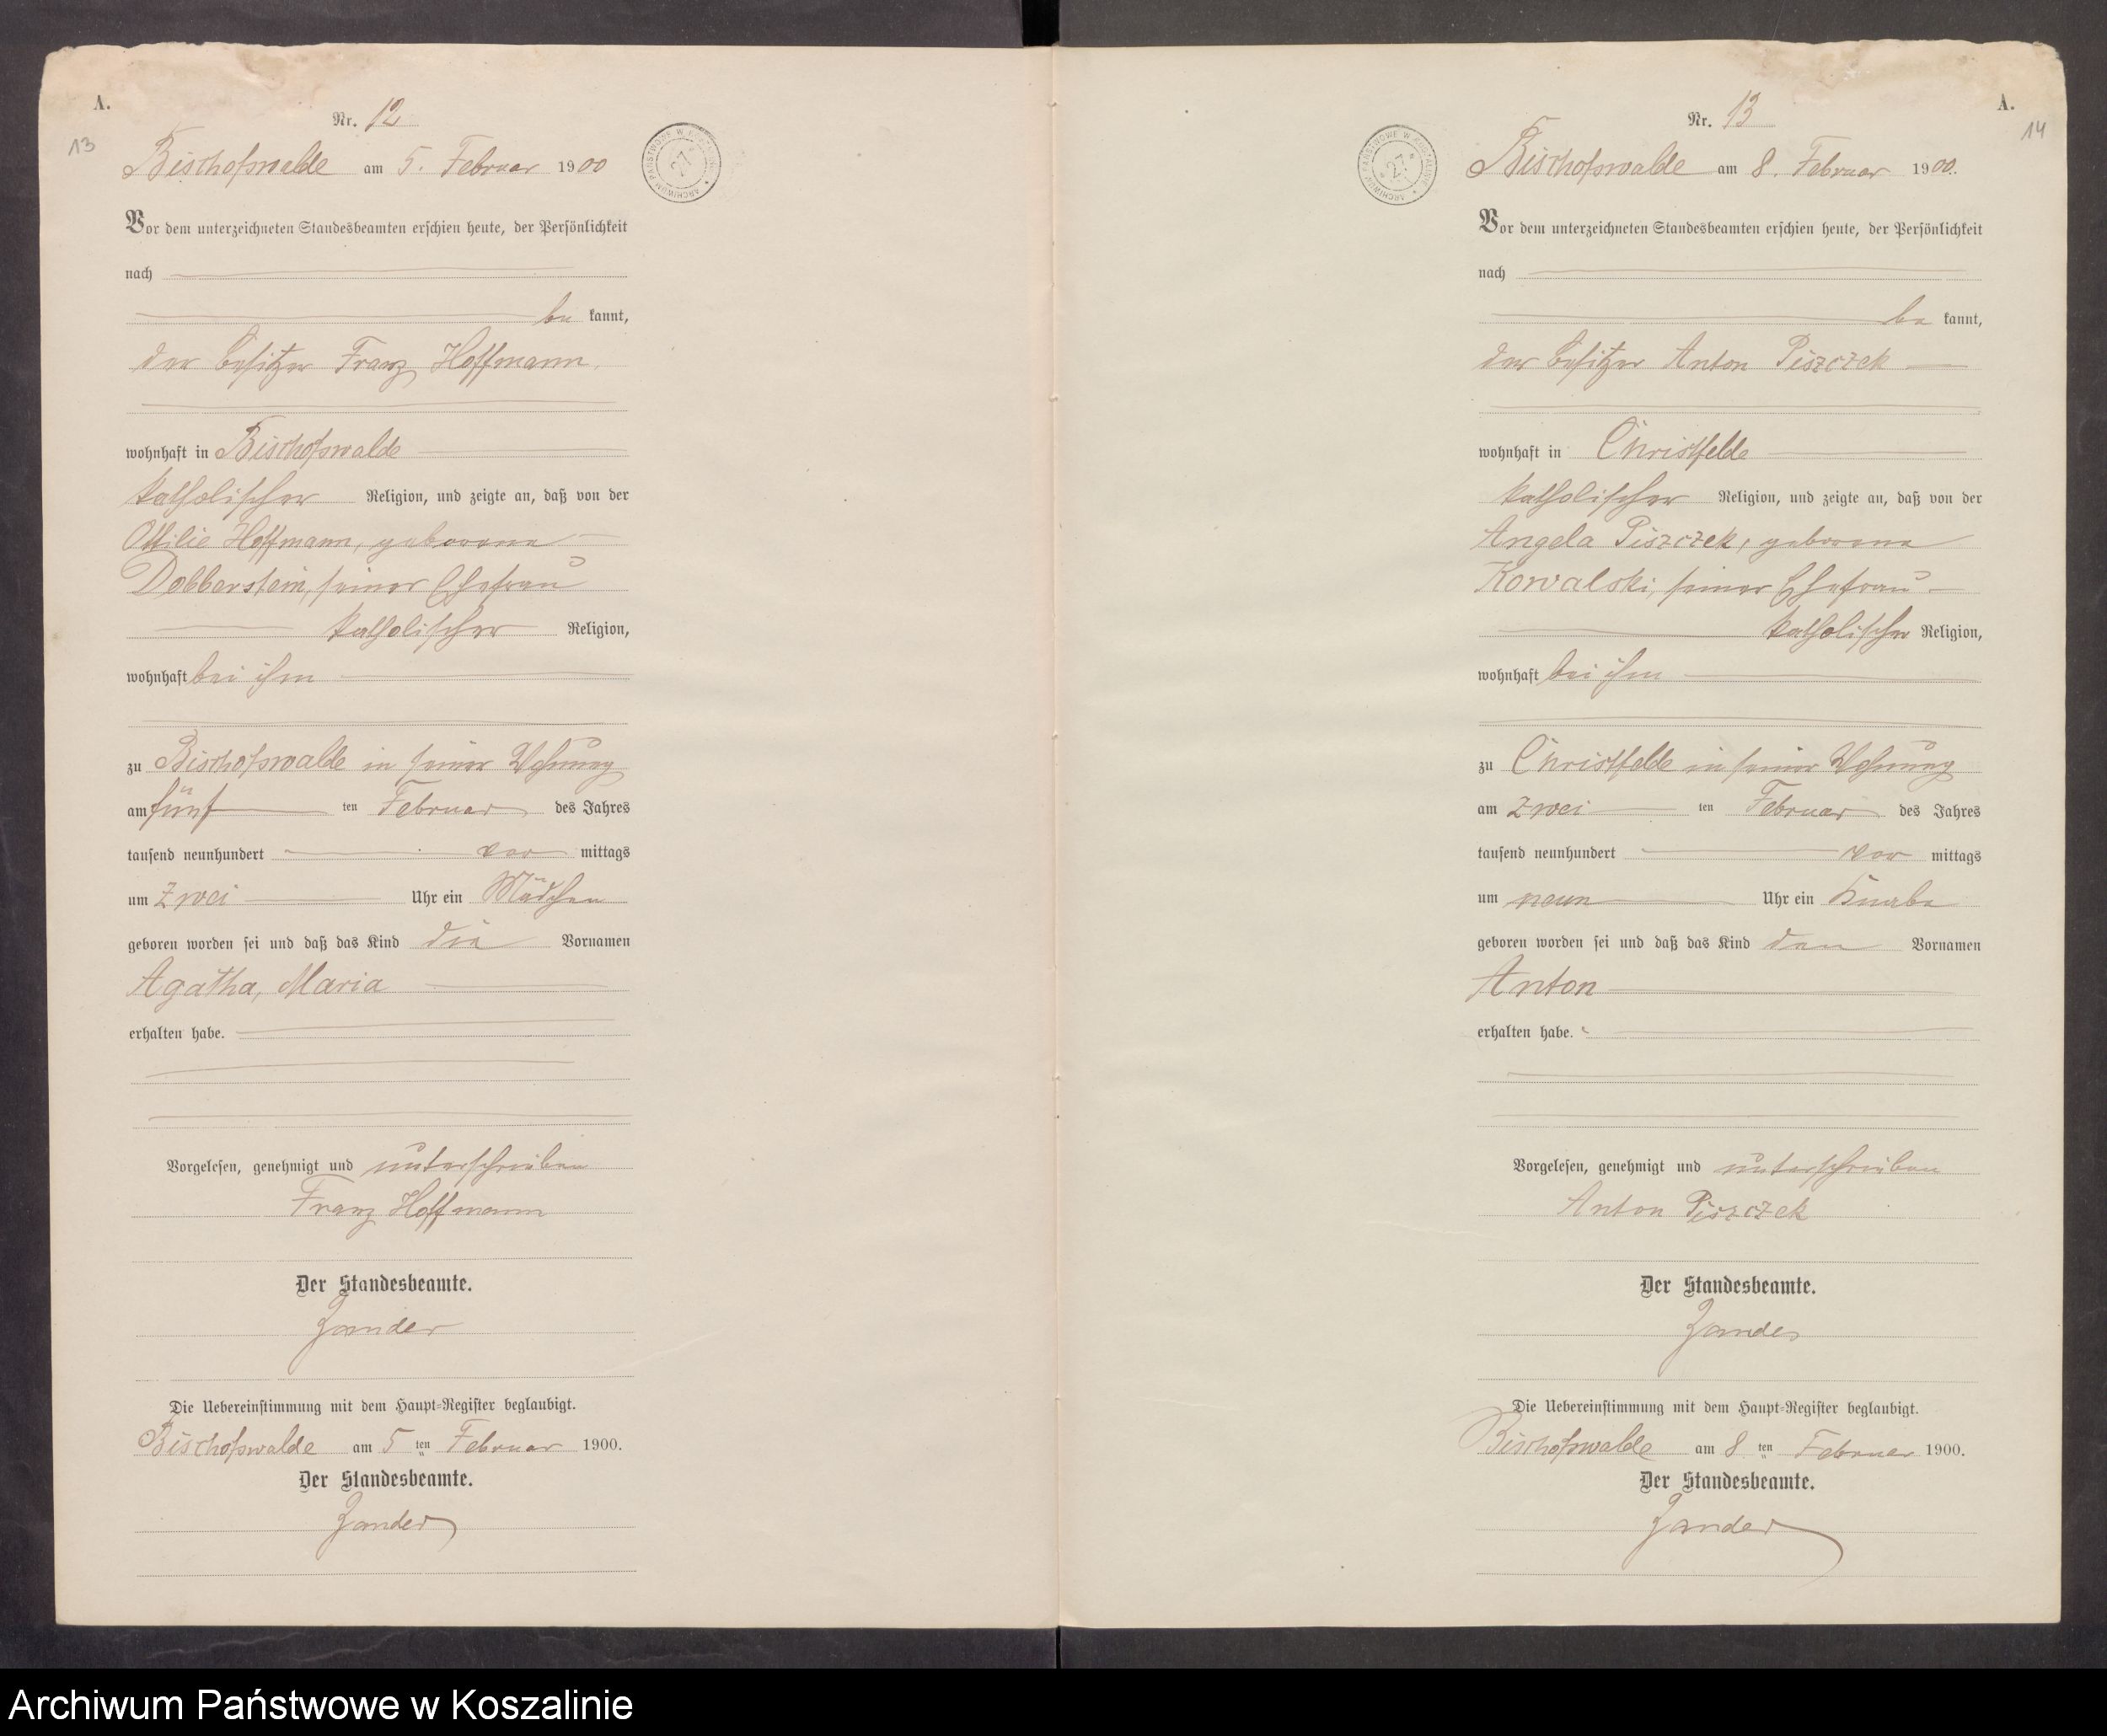 A.
13
Nr. 12
Bischofswalde am 5. Februar 1900
ARCHIWUM PAŃSTWOWE W KOSZALINIE
"27"
Vor dem unterzeichneten Standesbeamten erschien heute, der Persönlichkeit
nach
be kannt,
der Besitzer Franz Hoffmann,
wohnhaft in Bischofswalde
katholischer Religion, und zeigte an, daß von der
Ottilie Hoffmann, geborene
Dobberstein, seiner Ehefrau
katholischer Religion,
wohnhaft bei ihm
zu Bischofswalde in seiner Wohnung
am fünf ten Februar des Jahres
tausend neunhundert vor mittags
um zwei Uhr ein Mädchen
geboren worden sei und daß das Kind die Vornamen
Agatha, Maria
erhalten habe.
Vorgelesen, genehmigt und unterschrieben
Franz Hoffmann
Der Standesbeamte.
Zander
Die Uebereinstimmung mit dem Haupt-Register beglaubigt.
Bischofswalde am 5 ten Februar 1900.
Der Standesbeamte.
Zander
A.
14
Nr. 13
Bischofswalde am 8. Februar 1900.
ARCHIWUM PAŃSTWOWE W KOSZALINIE
"27"
Vor dem unterzeichneten Standesbeamten erschien heute, der Persönlichkeit
nach
be kannt,
der Besitzer Anton Piszczek
wohnhaft in Christfelde
katholischer Religion, und zeigte an, daß von der
Angela Piszczek, geborene
Kowalski, seiner Ehefrau
katholischer Religion,
wohnhaft bei ihm
zu Christfelde in seiner Wohnung
am zwei ten Februar des Jahres
tausend neunhundert vor mittags
um neun Uhr ein Knabe
geboren worden sei und daß das Kind den Vornamen
Anton
erhalten habe.
Vorgelesen, genehmigt und unterschrieben
Anton Piszczek
Der Standesbeamte.
Zander
Die Uebereinstimmung mit dem Haupt-Register beglaubigt.
Bischofswalde am 8 ten Februar 1900.
Der Standesbeamte.
Zander
Archiwum Państwowe w Koszalinie